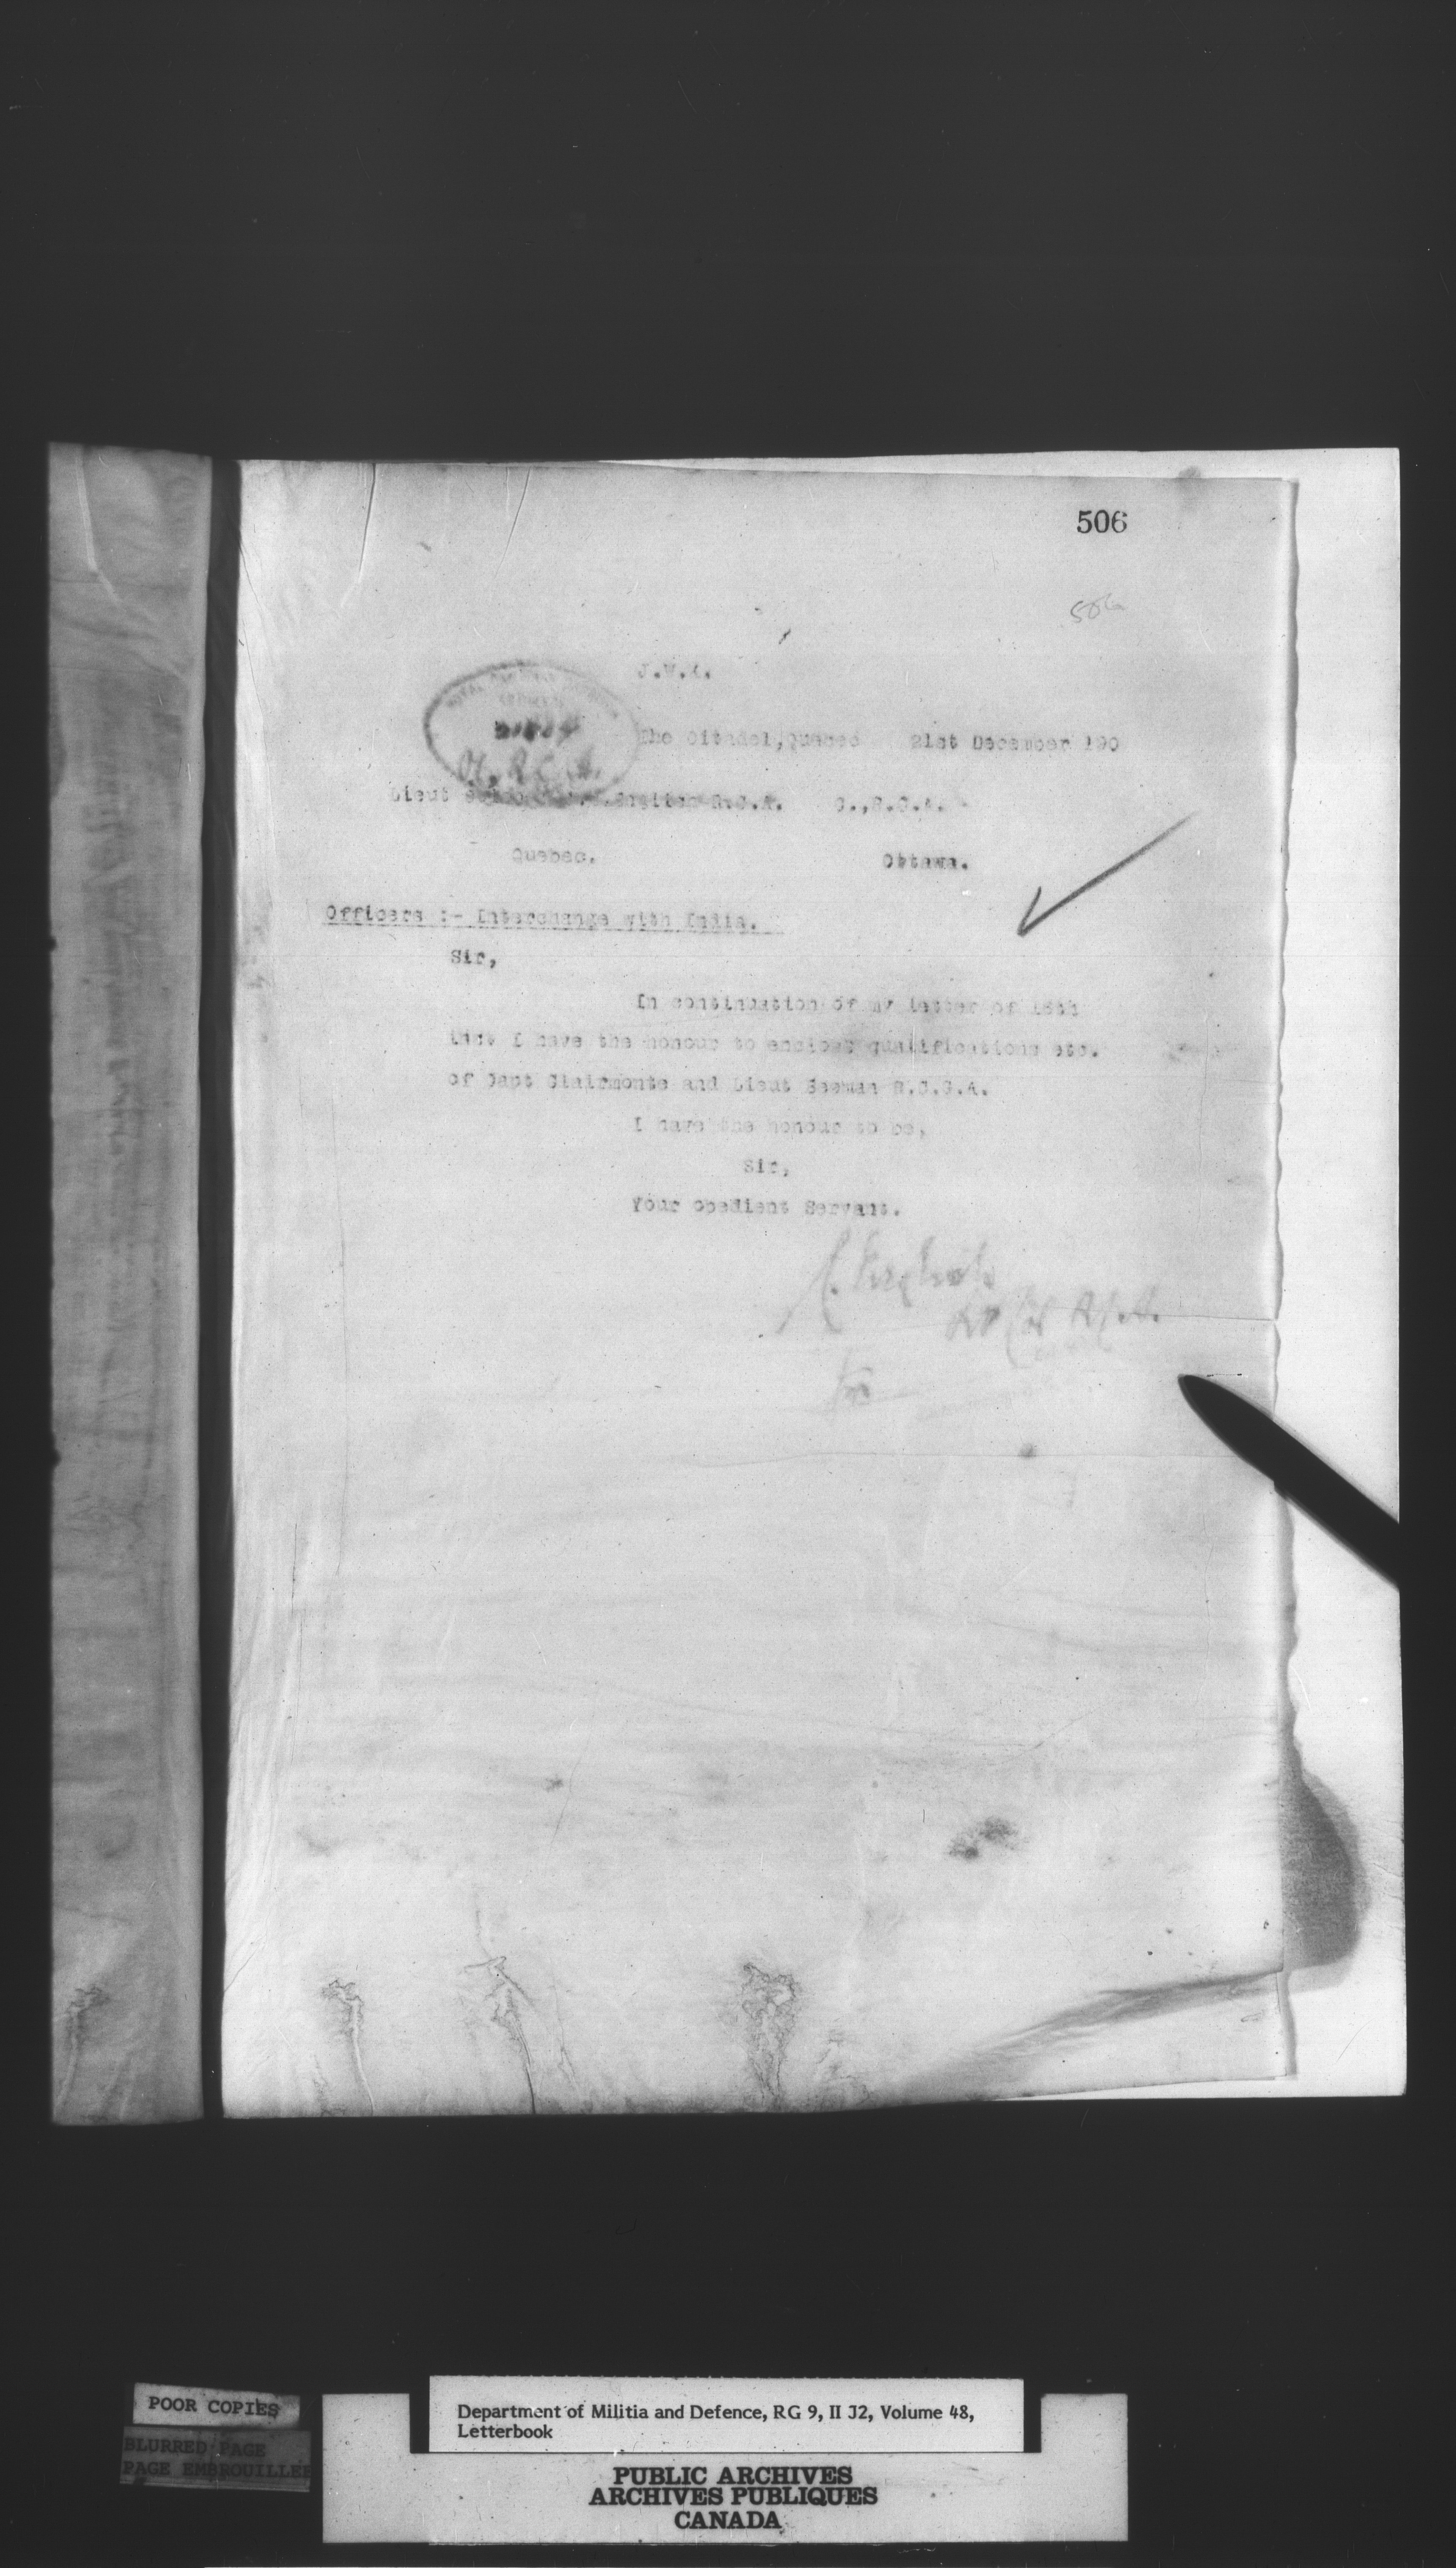 506
506
The Citadel, Quebec 21st December 190
Lieut R.C.A. O.,R.C.A.
Quebec. Ottawa.
Officers :- Interchange with India.
Sir,
In continuation of my letter of
inst I have the honour to enclose qualifications etc.
of Capt Clairmonte and Lieut Beeman R.C.G.A.
I have the honour to be,
Sir,
Your Obedient Servant.
for
POOR COPIES
BLURRED PAGE
PAGE EMBROUILLEE
Department of Militia and Defence, RG 9, II J2, Volume 48,
Letterbook
PUBLIC ARCHIVES
ARCHIVES PUBLIQUES
CANADA